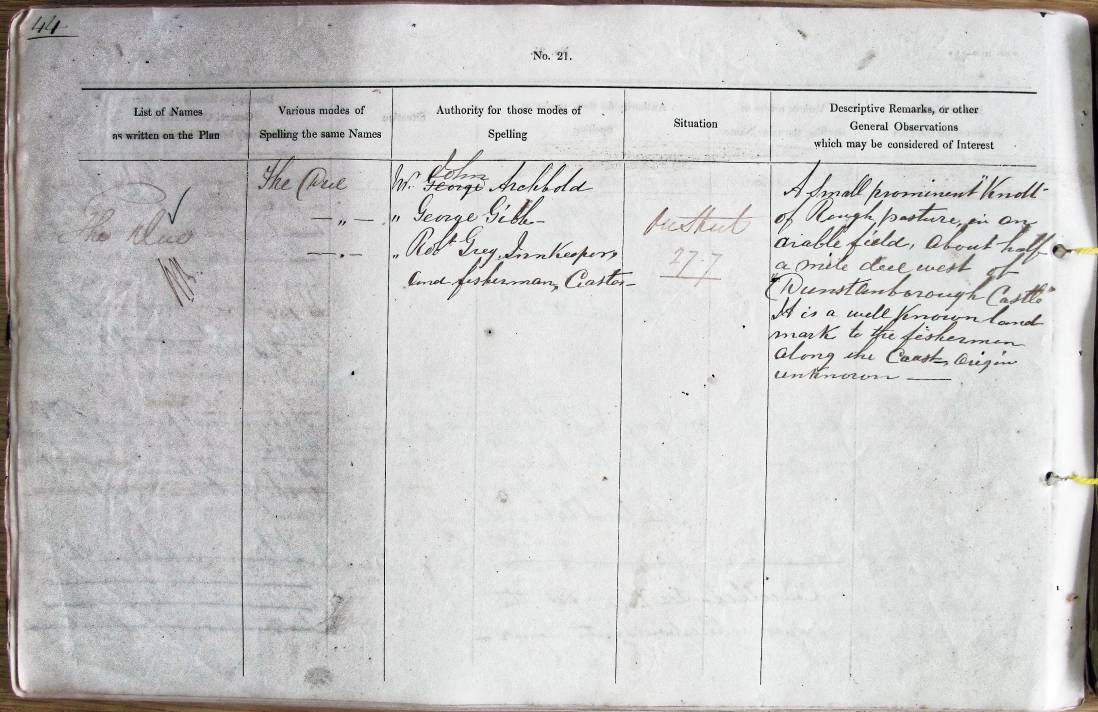 44
No. 21.
List of Names
as written on the Plan
Various modes of
Spelling the same Names
Authority for those modes of
Spelling
Situation
Descriptive Remarks, or other
General Observations
which may be considered of Interest
The
The
— „ —
— „ —
John
Mr. George Archbold
„ George Gibb
„ Robt Grey, Innkeeper,
and fisherman, Craster
on Sheet
27.7
A small prominent "Knoll"
of Rough pasture, in an
arable field, about half
a mile due west of
"Dunstanborough Castle"
It is a well known land
mark to the fishermen
along the Coast, Origin
unknown —